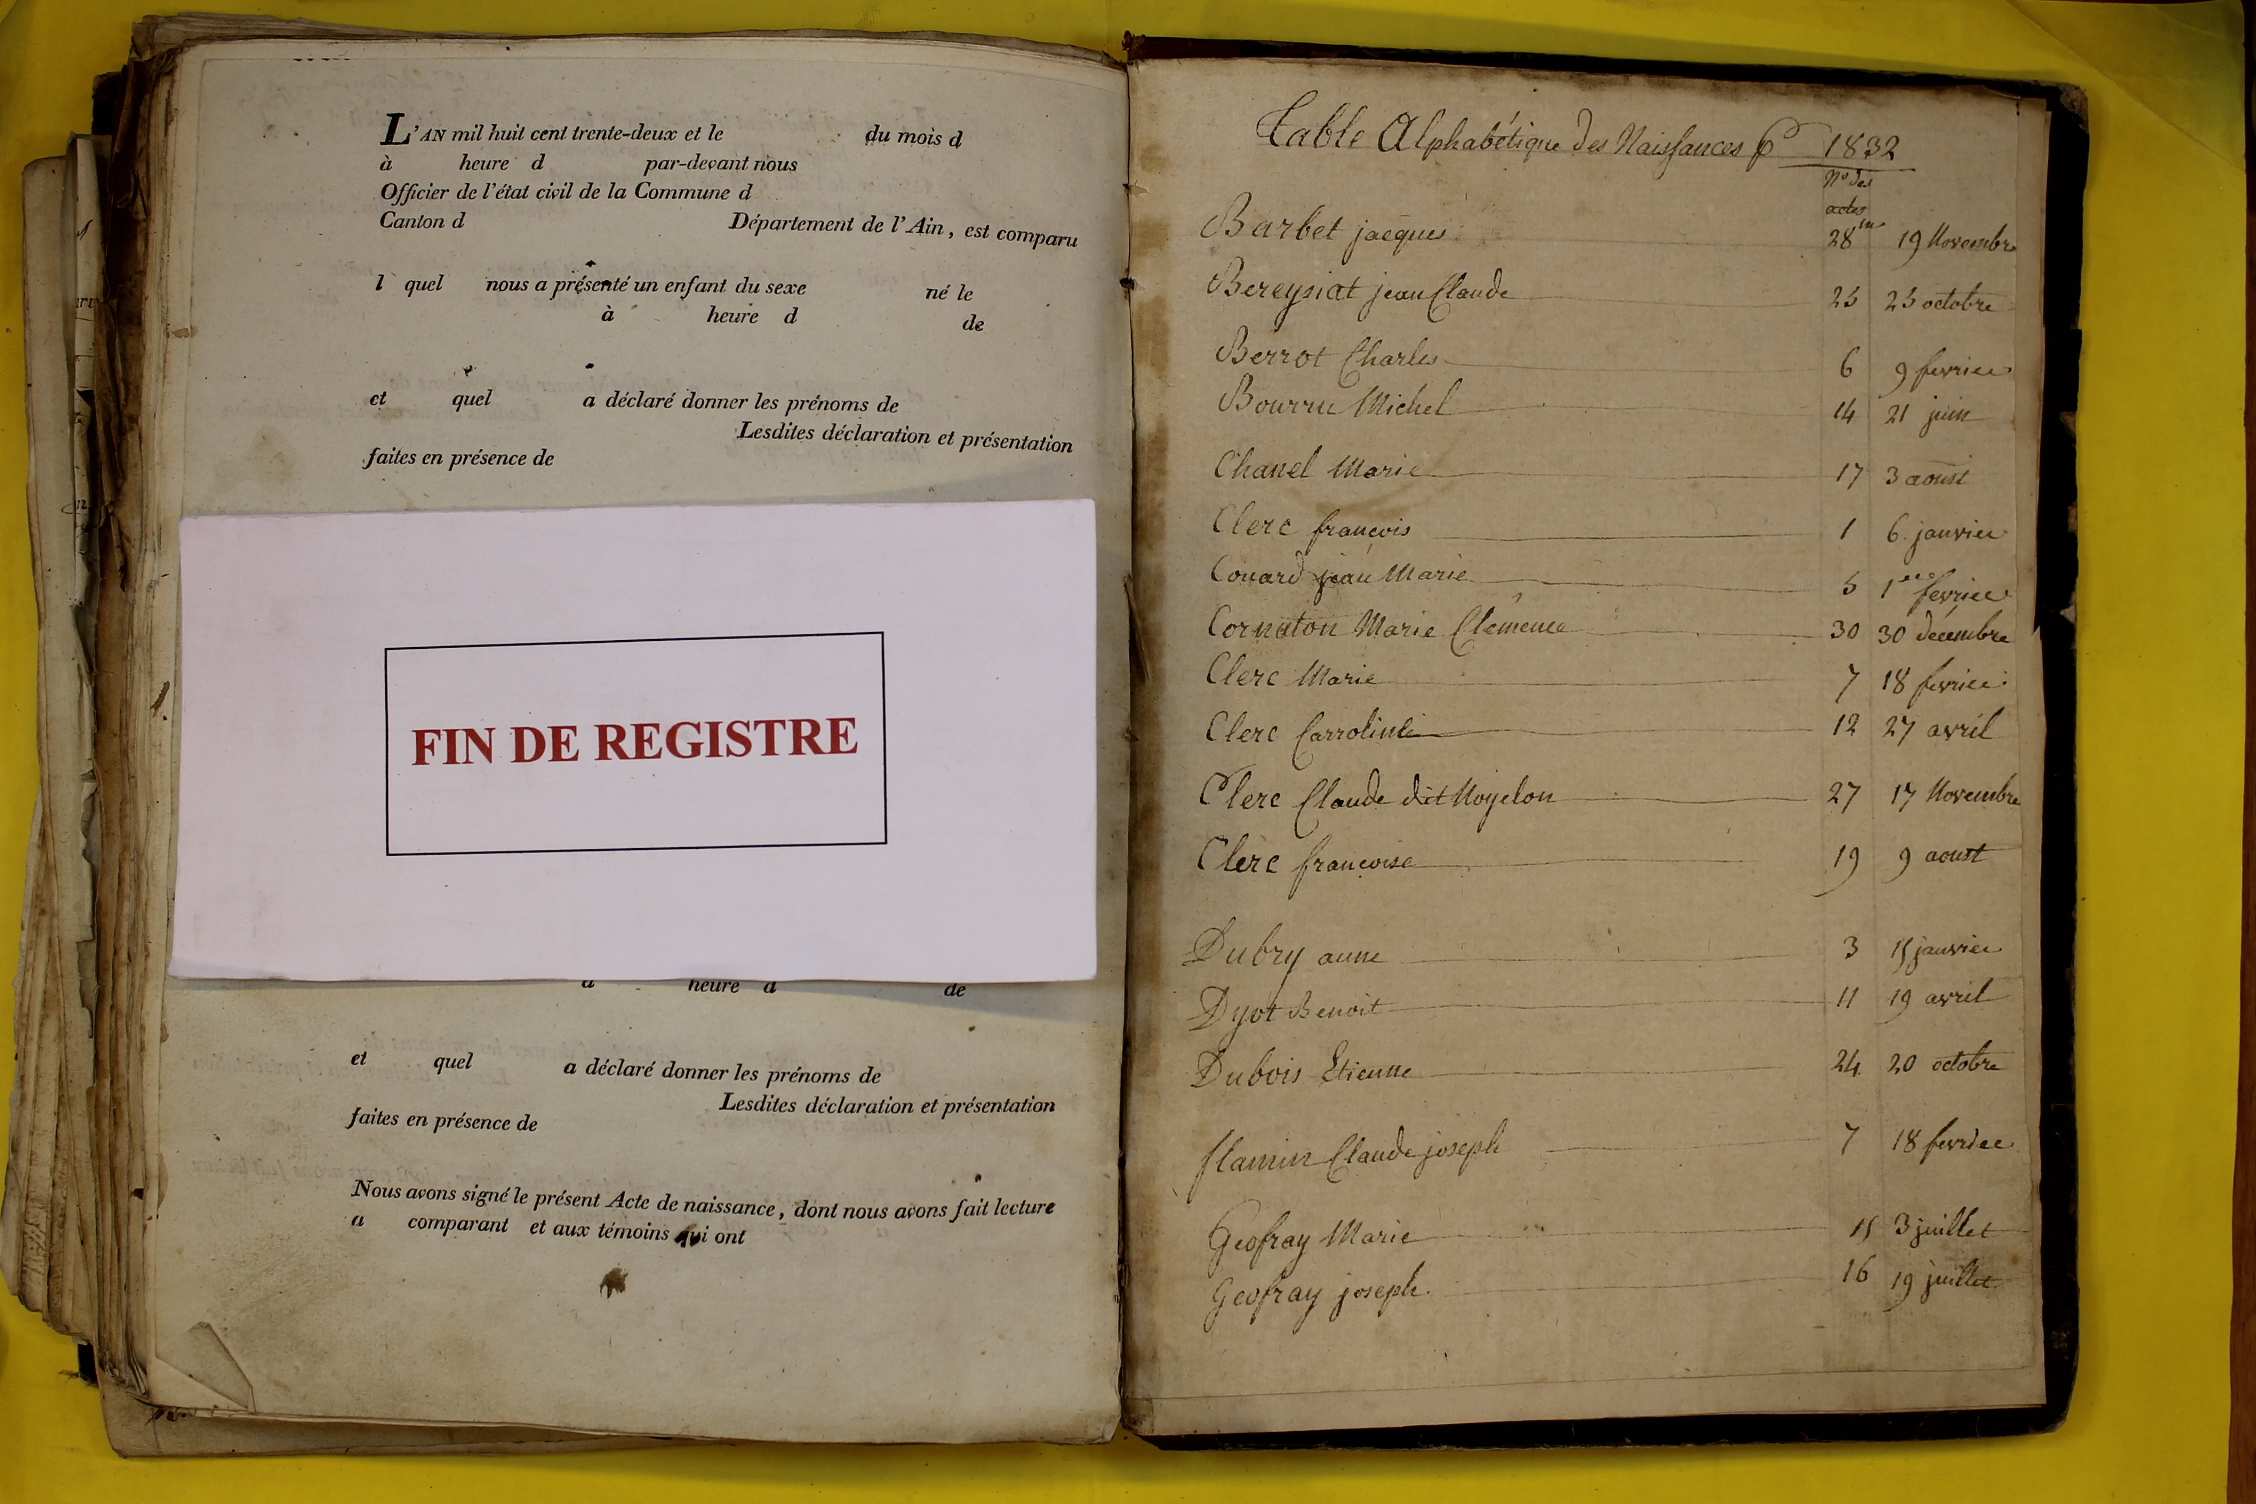 L'AN mil huit cent trente-deux et le du mois d
à heure d par-devant nous
Officier de l'état civil de la Commune d
Canton d Département de l'Ain, est comparu
l quel nous a présenté un enfant du sexe né le
à heure d de
et quel a déclaré donner les prénoms de
Lesdites déclaration et présentation
faites en présence de
FIN DE REGISTRE
a heure d de
et quel a déclaré donner les prénoms de
Lesdites déclaration et présentation
faites en présence de
Nous avons signé le présent Acte de naissance, dont nous avons fait lecture
a comparant et aux témoins qui ont
Table Alphabétique des Naissances 1832
Nos des
actes
Barbet jacques 28 19 Novembre
Bereysiat jean Claude 25 25 octobre
Berrot Charles 6 9 fevrier
Bourru Michel 14 21 juin
Chanel Marie 17 3 aoust
Clerc francois 1 6 janvier
Couard jean Marie 5 1er fevrier
Cornaton Marie Clémence 30 30 décembre
Clerc Marie 7 18 fevrier
Clerc Carroline 12 27 avril
Clerc Claude dit Noyelon 27 17 Novembre
Clerc francoise 19 9 aoust
Dubry anne 3 15 janvier
Dyot Benoit 11 19 avril
Dubois Etienne 24 20 octobre
flamin Claude joseph 7 18 fevrier
Geofray Marie 15 3 juillet
Geofray joseph 16 19 juillet